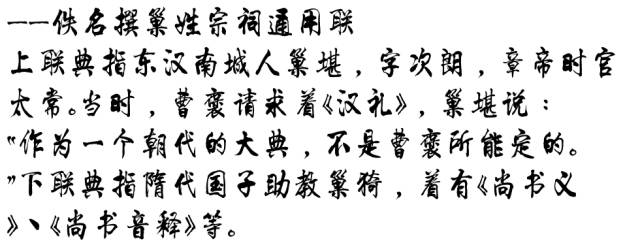 ——佚名撰巢姓宗祠通用联
上联典指东汉南城人巢堪，字次朗，章帝时官
太常。当时，曹褒请求着《汉礼》，巢堪说：
"作为一个朝代的大典，不是曹褒所能定的。
"下联典指隋代国子助教巢猗，着有《尚书义
》、《尚书音释》等。